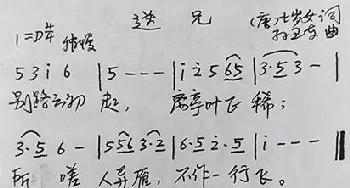 送兄
(唐)七岁女 词
1=♭B 4/4 稍慢
曲
5 3 i 6 | 5 - - - | i 2 5 6 5 | 3·5 3 - |
别路云初起, 离亭叶飞稀;
3·5 6 - | 5 5 6 3·2 | 6·5 2·5 | i - - - ‖
所嗟人异雁, 不作一行飞。